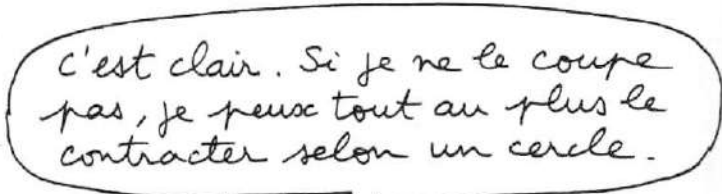 C'est clair. Si je ne le coupe
pas, je peux tout au plus le
contracter selon un cercle.